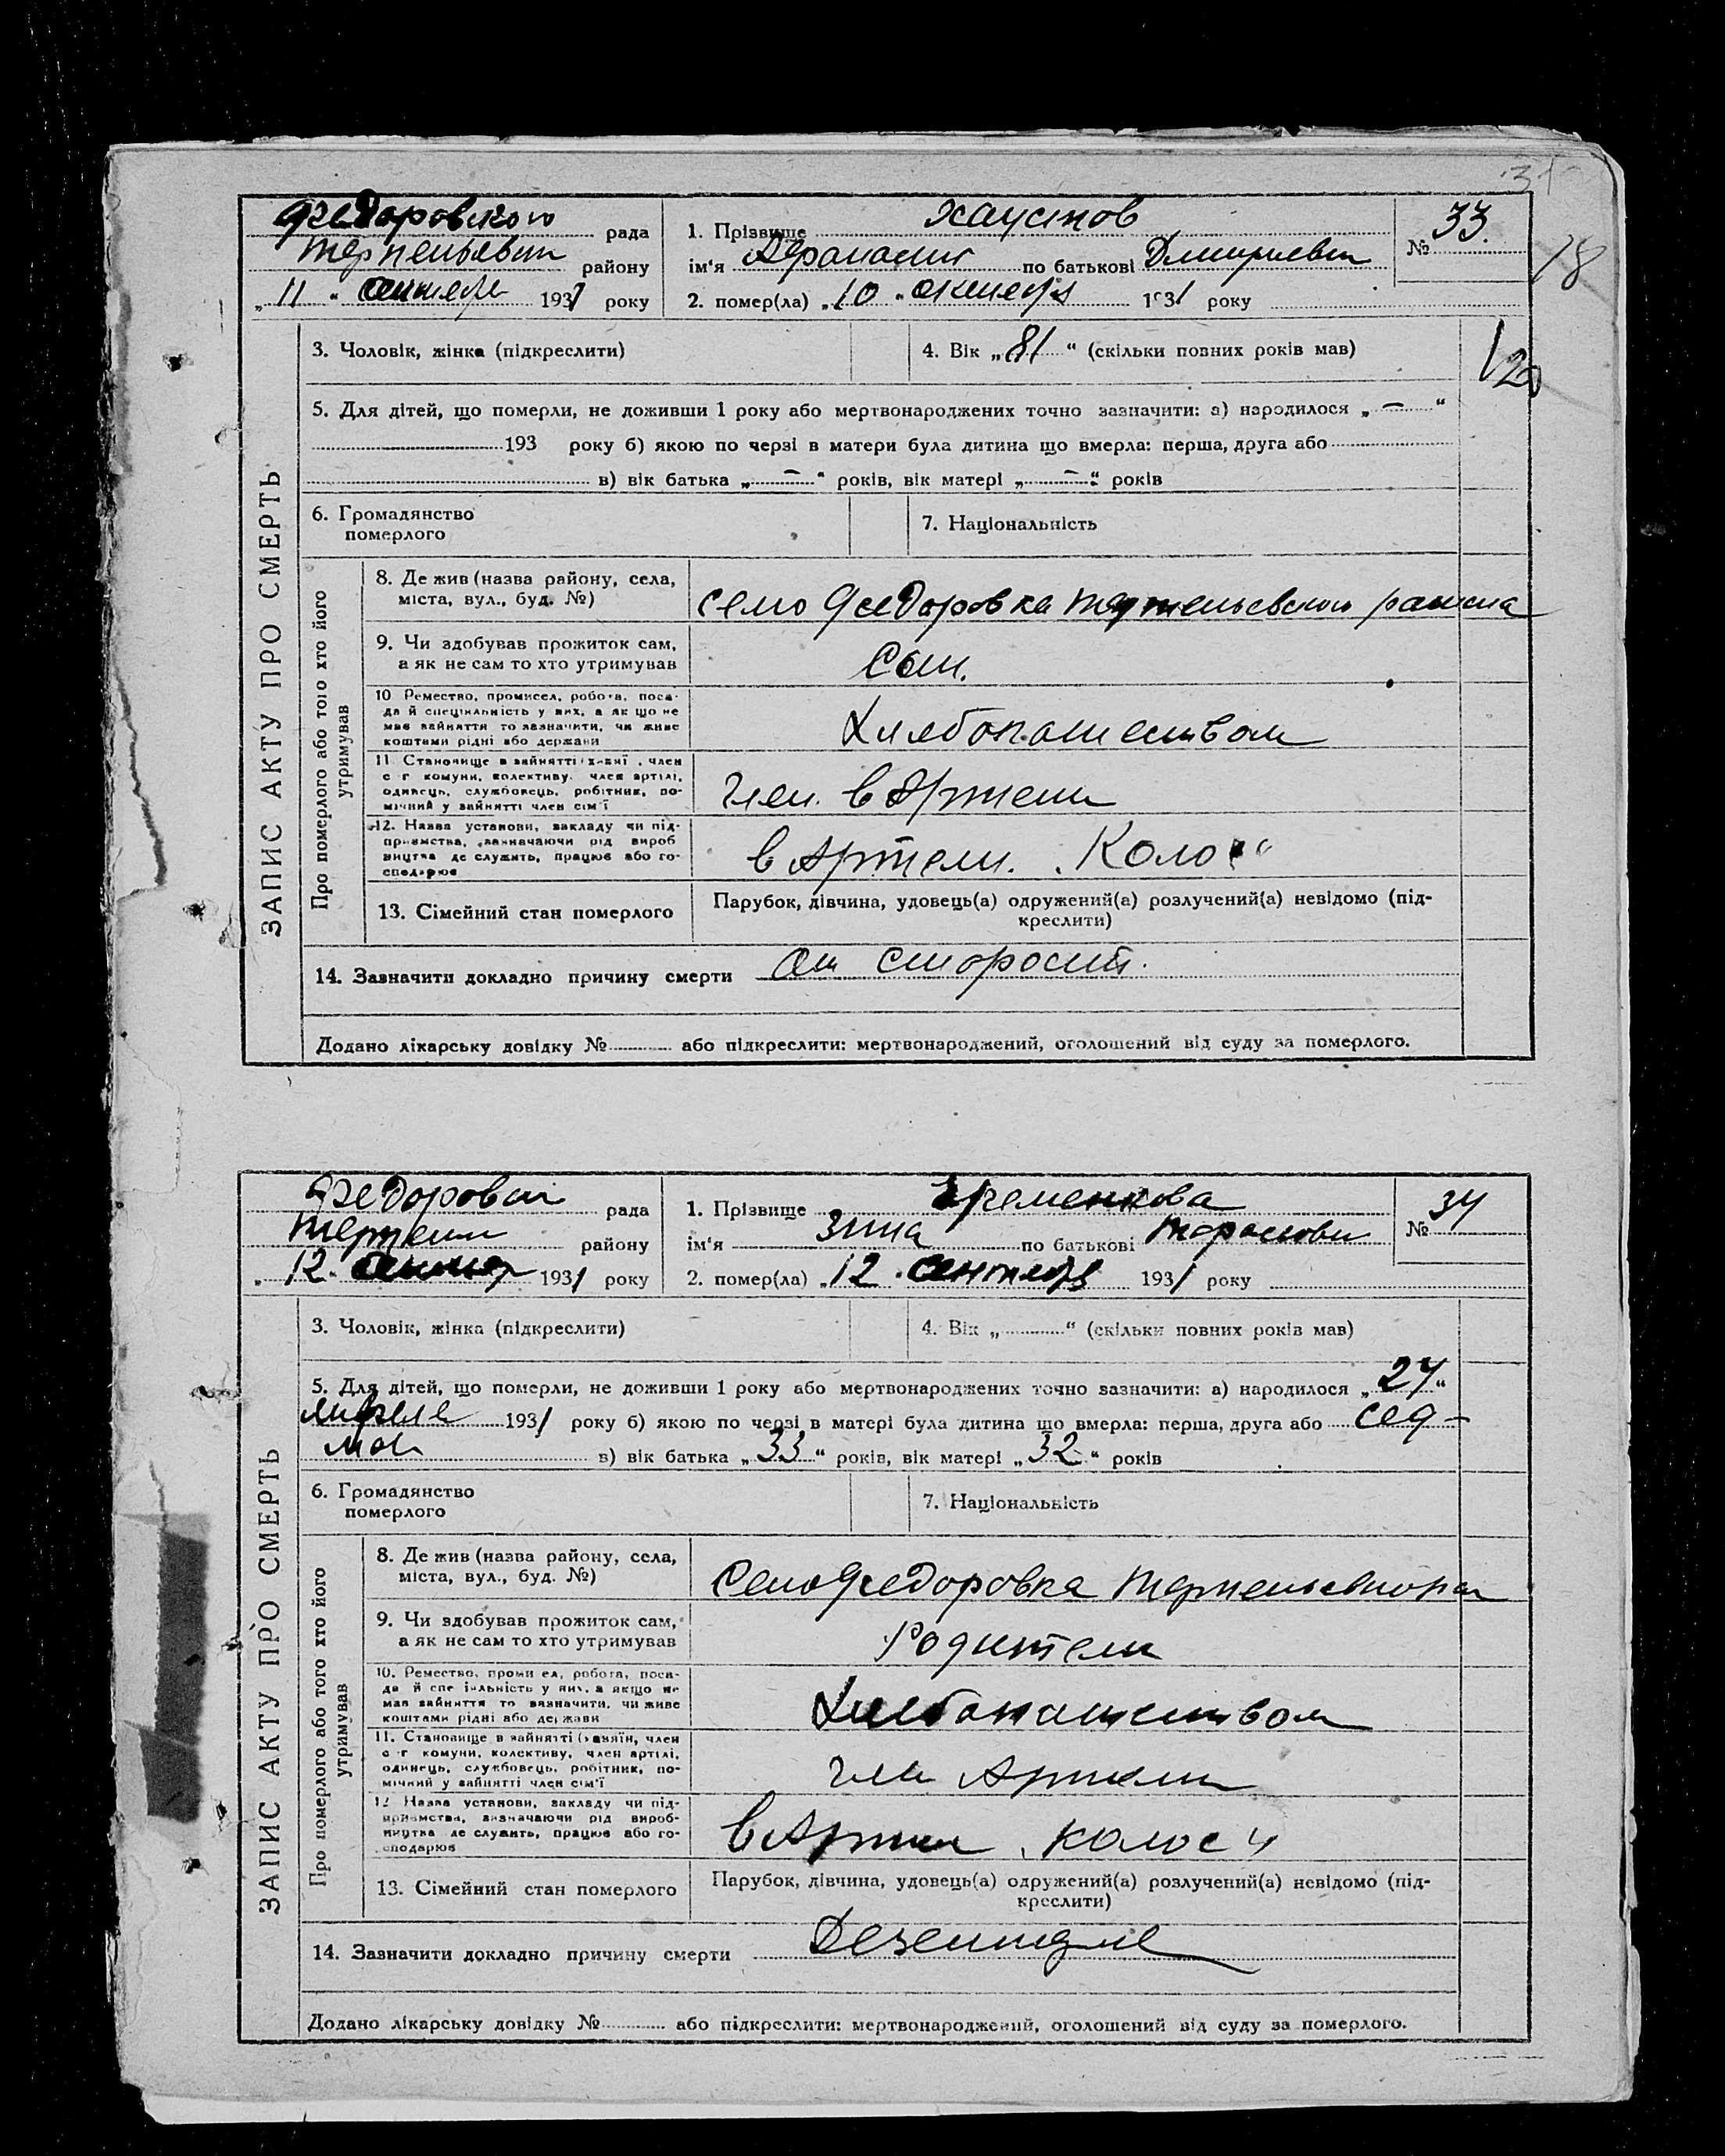 31
Федоровского рада
Терпеньевск району
„11“ сентября 1931 року
1. Прізвище Хаустов
ім'я Афанасий по батькові Дмитриевич
2. помер(ла) „10“ 1931 року
№ 33.
18
3. Чоловік, жінка (підкреслити)
4. Вік „81“ (скільки повних років мав)
1/20
5. Для дітей, що померли, не доживши 1 року або мертвонароджених точно зазначити: а) народилося „ — “
193 року б) якою по черзі в матери була дитина що вмерла: перша, друга або
в) вік батька „ — “ років, вік матері „ — “ років
6. Громадянство померлого
7. Національність
ЗАПИС АКТУ ПРО СМЕРТЬ
Про померлого або того хто його утримував
8. Де жив (назва району, села, міста, вул., буд. №)
село Федоровка Терпеньевского района
9. Чи здобував прожиток сам, а як не сам то хто утримував
Сын.
10 Ремество, промисел, робота, посада й спеціяльність у них, а як що не мав зайняття то зазначити, чи живе коштами рідні або держави
Хлебопашеством
11 Становище в зайнятті хазяї , член с-г комуни, колективу, член артілі, одинець, службовець, робітник, помічний у зайнятті член сім'ї
член. в Артели
12. Назва установи, закладу чи підприємства, зазначаючи рід виробництва де служить, працює або господарює
в Артели. „Колос“
13. Сімейний стан померлого
Парубок, дівчина, удовець(а) одружений(а) розлучений(а) невідомо (підкреслити)
14. Зазначити докладно причину смерти От старости.
Додано лікарську довідку № або підкреслити: мертвонароджений, оголошений від суду за померлого.
Федоровск рада
Терпен району
„12“ сентябр 1931 року
1. Прізвище Еременкова
ім'я Зина по батькові Тарасовн
2. помер(ла) „12“ сентября 1931 року
№ 34
3. Чоловік, жінка (підкреслити)
4. Вік „ “ (скільки повних років мав)
5. Для дітей, що померли, не доживши 1 року або мертвонароджених точно зазначити: а) народилося „24“
1931 року б) якою по черзі в матері була дитина що вмерла: перша, друга або сед-
мой в) вік батька „33“ років, вік матері „32“ років
6. Громадянство померлого
7. Національність
ЗАПИС АКТУ ПРО СМЕРТЬ
Про померлого або того хто його утримував
8. Де жив (назва району, села, міста, вул., буд. №)
Село Федоровка
9. Чи здобував прожиток сам, а як не сам то хто утримував
Родители
10. Ремество, промисел, робота, посада й спеціяльність у них, а якщо не мав зайняття то зазначити, чи живе коштами рідні або держави
Хлебопашеством
11. Становище в зайнятті (хазяїн, член с-г комуни, колективу, член артілі, одинець, службовець, робітник, помічний у зайнятті член сім'ї
член Артели
12 Назва установи, закладу чи підприємства, зазначаючи рід виробництва де служить, працює або господарює
в Артели „Колос“
13. Сімейний стан померлого
Парубок, дівчина, удовець(а) одружений(а) розлучений(а) невідомо (підкреслити)
14. Зазначити докладно причину смерти
Додано лікарську довідку № або підкреслити: мертвонароджений, оголошений від суду за померлого.